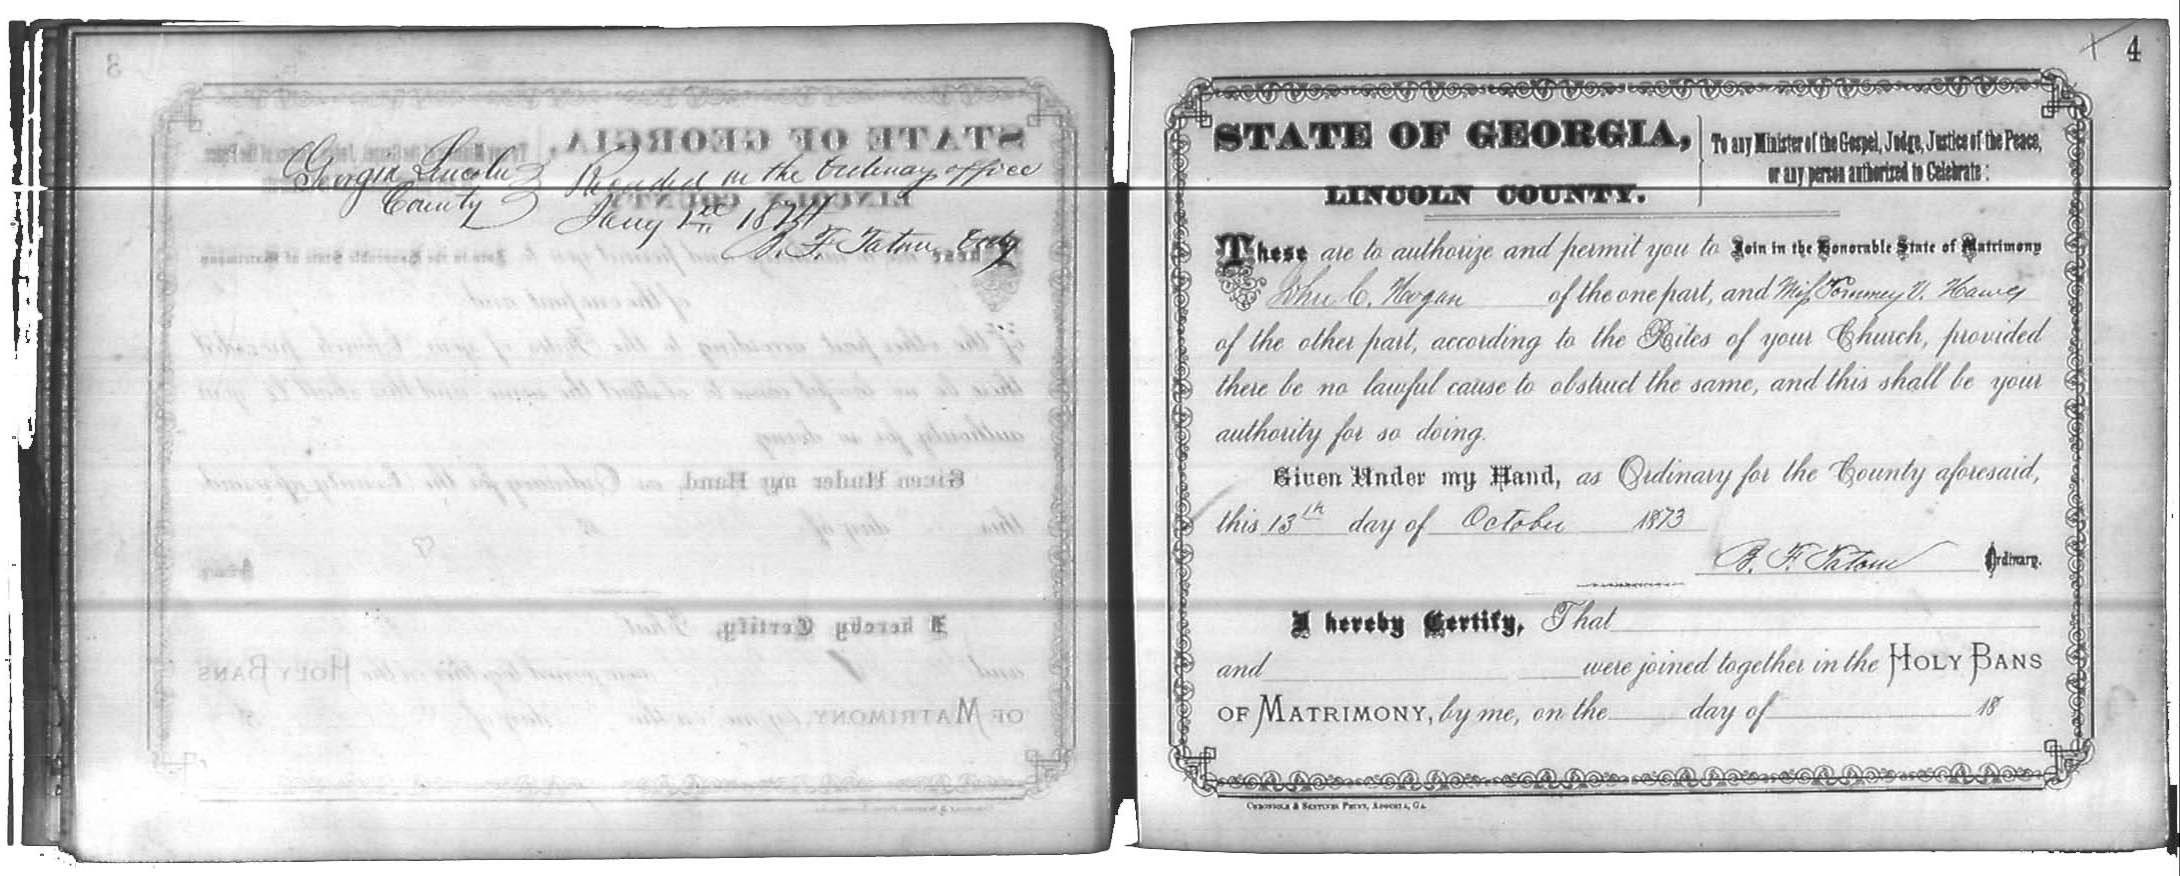 Georgia Lincoln
County
Recorded in the Ordinary office
Jany 1st 1874
B. F. Tatom Ordy
4
STATE OF GEORGIA,
LINCOLN COUNTY.
To any Minister of the Gospel, Judge, Justice of the Peace,
or any person authorized to Celebrate:
These are to authorize and permit you to Join in the Honorable State of Matrimony
John C. Hogan of the one part, and Miss Tommey V. Hawes
of the other part, according to the Rites of your Church, provided
there be no lawful cause to obstruct the same, and this shall be your
authority for so doing.
Given Under my Hand, as Ordinary for the County aforesaid,
this 13th day of October 1873
B. F. Tatom Ordinary.
I hereby Certify, That
and were joined together in the HOLY BANS
OF MATRIMONY, by me, on the day of 18
CHRONICLE & SENTINEL PRINT, AUGUSTA, GA.